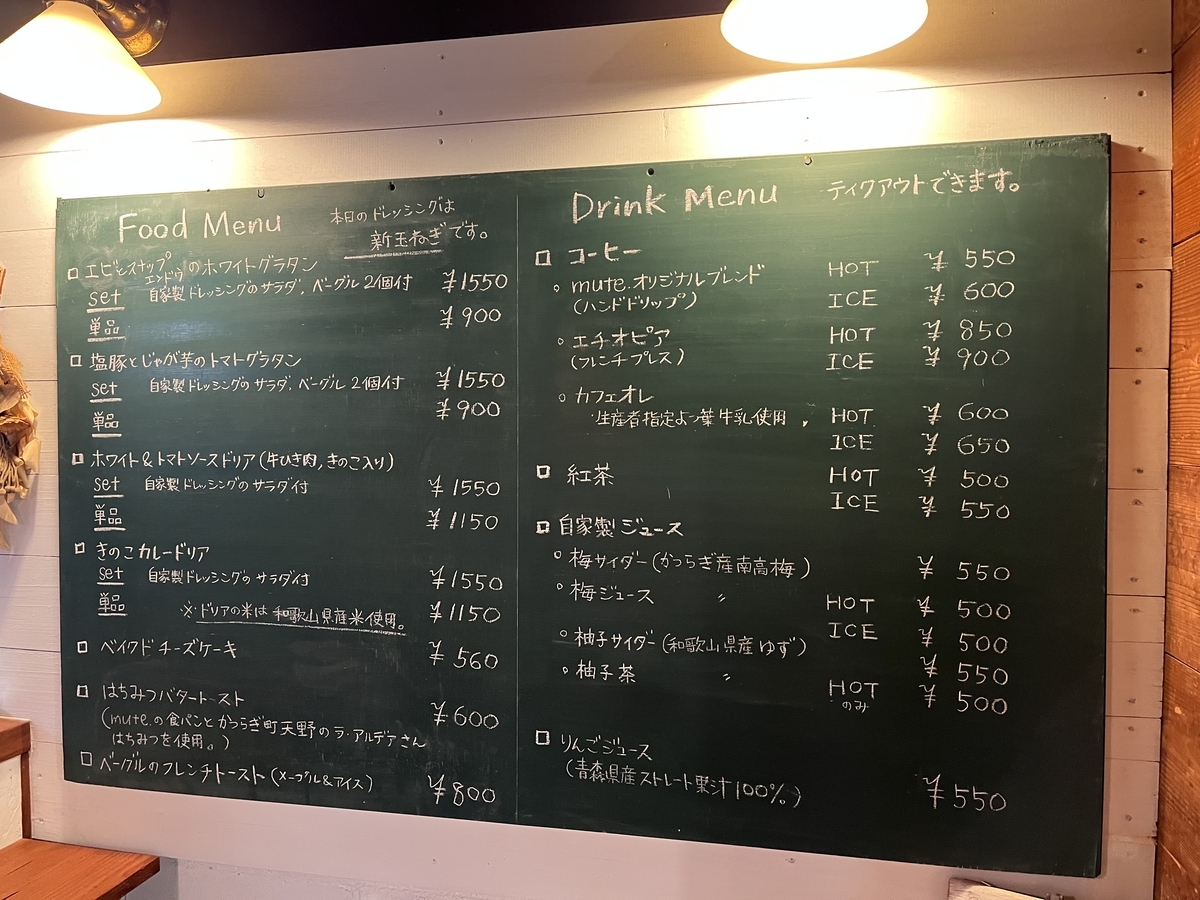 Food Menu
本日のドレッシングは
新玉ねぎです。
□ エビとスナップエンドウのホワイトグラタン
set 自家製ドレッシングのサラダ, ベーグル2個付 ¥1550
単品 ¥900
□ 塩豚とじゃが芋のトマトグラタン
set 自家製ドレッシングのサラダ, ベーグル2個付 ¥1550
単品 ¥900
□ ホワイト&トマトソースドリア(牛ひき肉,きのこ入り)
set 自家製ドレッシングのサラダ付 ¥1550
単品 ¥1150
□ きのこカレードリア
set 自家製ドレッシングのサラダ付 ¥1550
単品 ¥1150
※ドリアの米は和歌山県産米使用。
□ ベイクドチーズケーキ ¥560
□ はちみつバタートースト ¥600
(mute.の食パンとかつらぎ町天野のラ・アルデアさん
はちみつを使用。)
□ ベーグルのフレンチトースト(メープル&アイス) ¥800
Drink Menu
テイクアウトできます。
□ コーヒー
○ mute.オリジナルブレンド HOT ¥550
(ハンドドリップ) ICE ¥600
○ エチオピア HOT ¥850
(フレンチプレス) ICE ¥900
○ カフェオレ
・生産者指定よつ葉牛乳使用 HOT ¥600
ICE ¥650
□ 紅茶 HOT ¥500
ICE ¥550
□ 自家製ジュース
○ 梅サイダー(かつらぎ産南高梅) ¥550
○ 梅ジュース 〃 HOT ¥500
ICE ¥500
○ 柚子サイダー(和歌山県産ゆず) ¥550
○ 柚子茶 〃 HOTのみ ¥500
□ りんごジュース
(青森県産ストレート果汁100%) ¥550